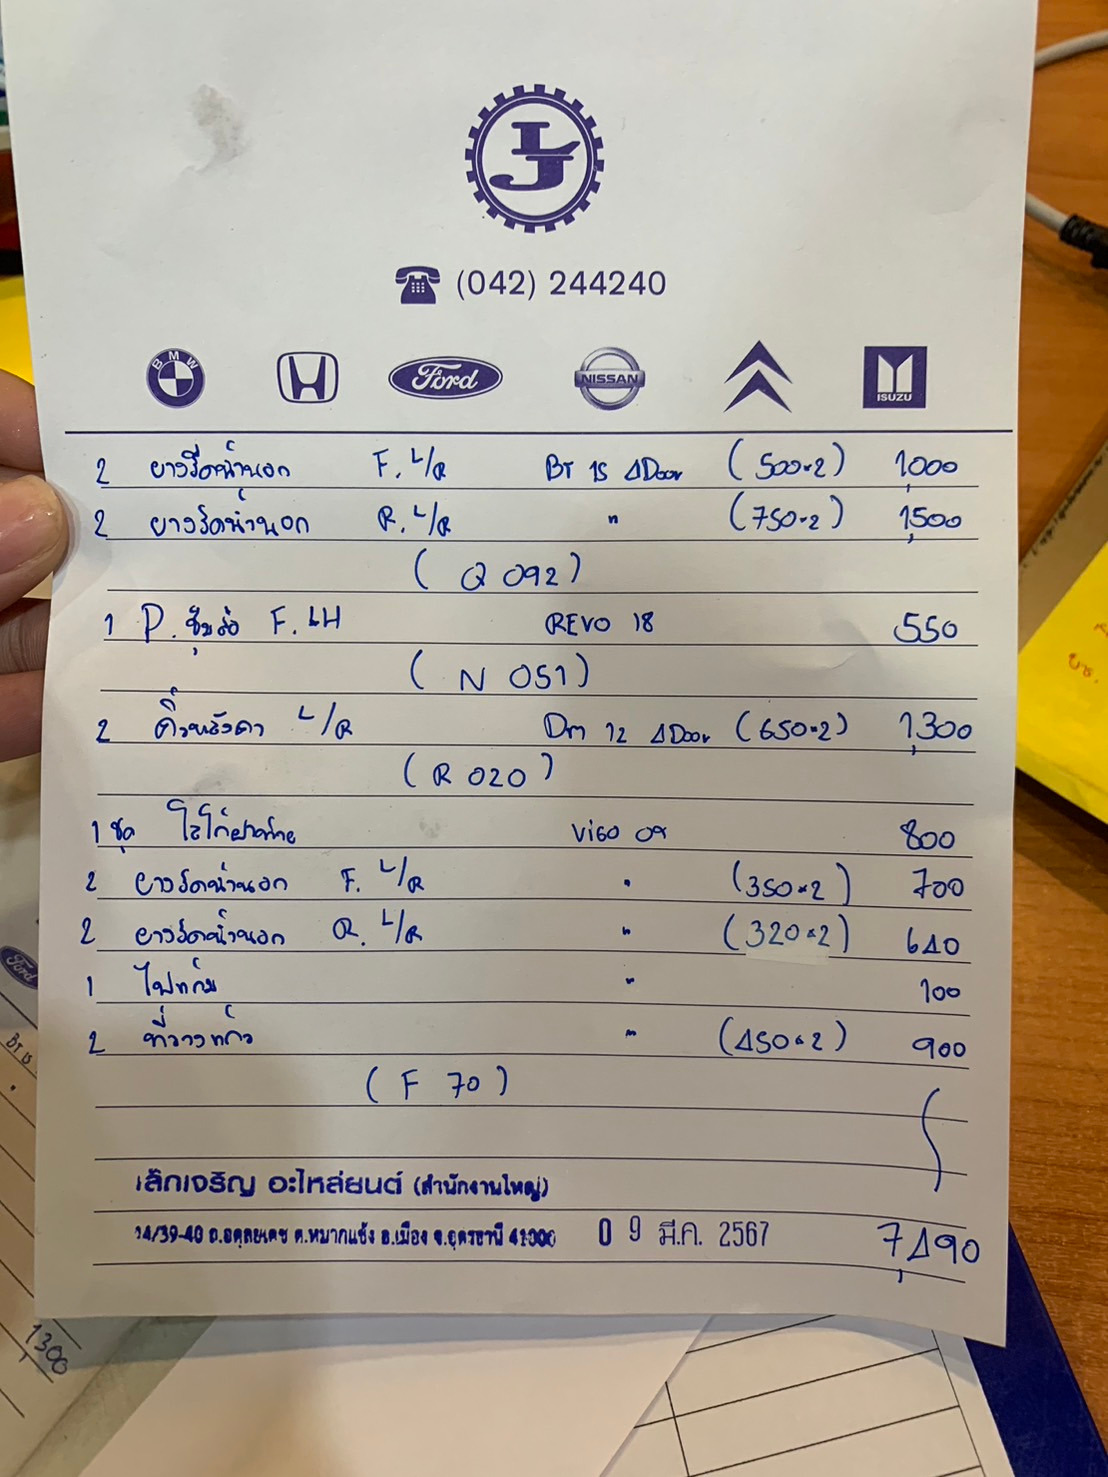 LJ
(042) 244240
BMW Ford NISSAN ISUZU
2 ยางรีดน้ำนอก F. L/R BT 15 4Door (500×2) 1,000
2 ยางรีดน้ำนอก R. L/R " (750×2) 1,500
(Q 092)
1 P. ซุ้มล้อ F. LH REVO 18 550
(N 051)
2 คิ้วหลังคา L/R Dm 12 4Door (650×2) 1,300
(R 020)
1 ชุด ไส้ไก่ฝาท้าย Vigo 09 800
2 ยางรีดน้ำนอก F. L/R " (350×2) 700
2 ยางรีดน้ำนอก R. L/R " (320×2) 640
1 ไฟเก๋ง " 100
2 ที่วางแก้ว " (450×2) 900
(F 70)
เล็กเจริญ อะไหล่ยนต์ (สำนักงานใหญ่)
14/39-40 ถ.อดุลยเดช ต.หมากแข้ง อ.เมือง จ.อุดรธานี 41000 09 มี.ค. 2567 7,490
Ford
BT 15
1,300